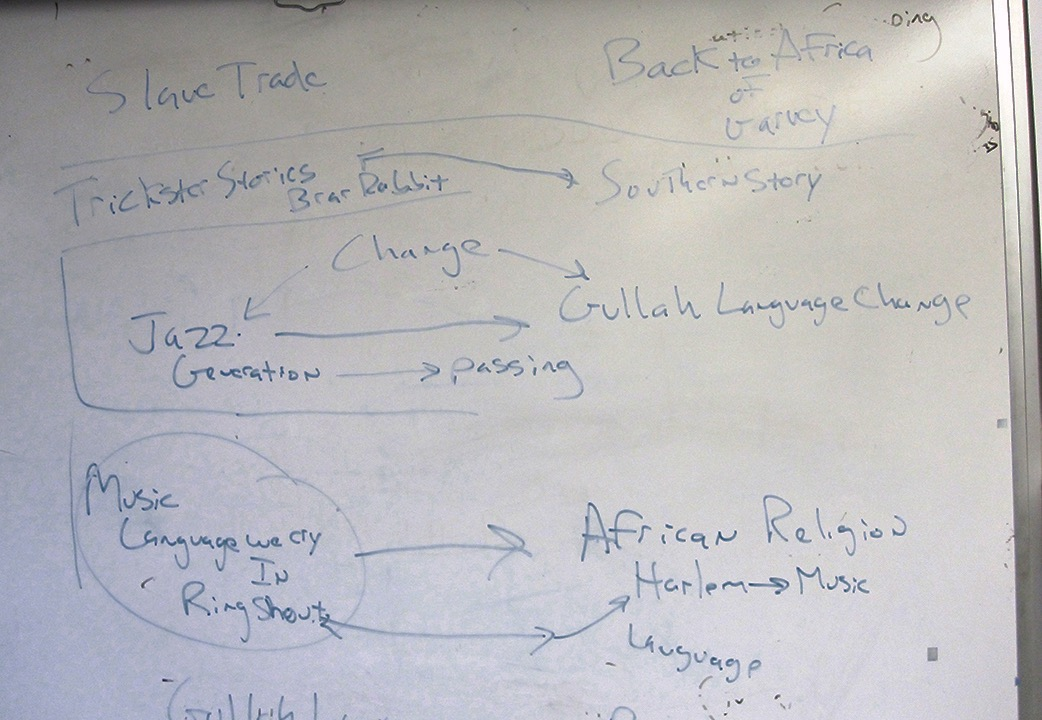 oing
Slave Trade
Back to Africa
of
Garvey
Trickster Stories
Brar Rabbit
Southern Story
Change
Gullah Language Change
Jazz
Generation
passing
Music
Language we cry
In
Ring Shout
African Religion
Harlem → Music
Language